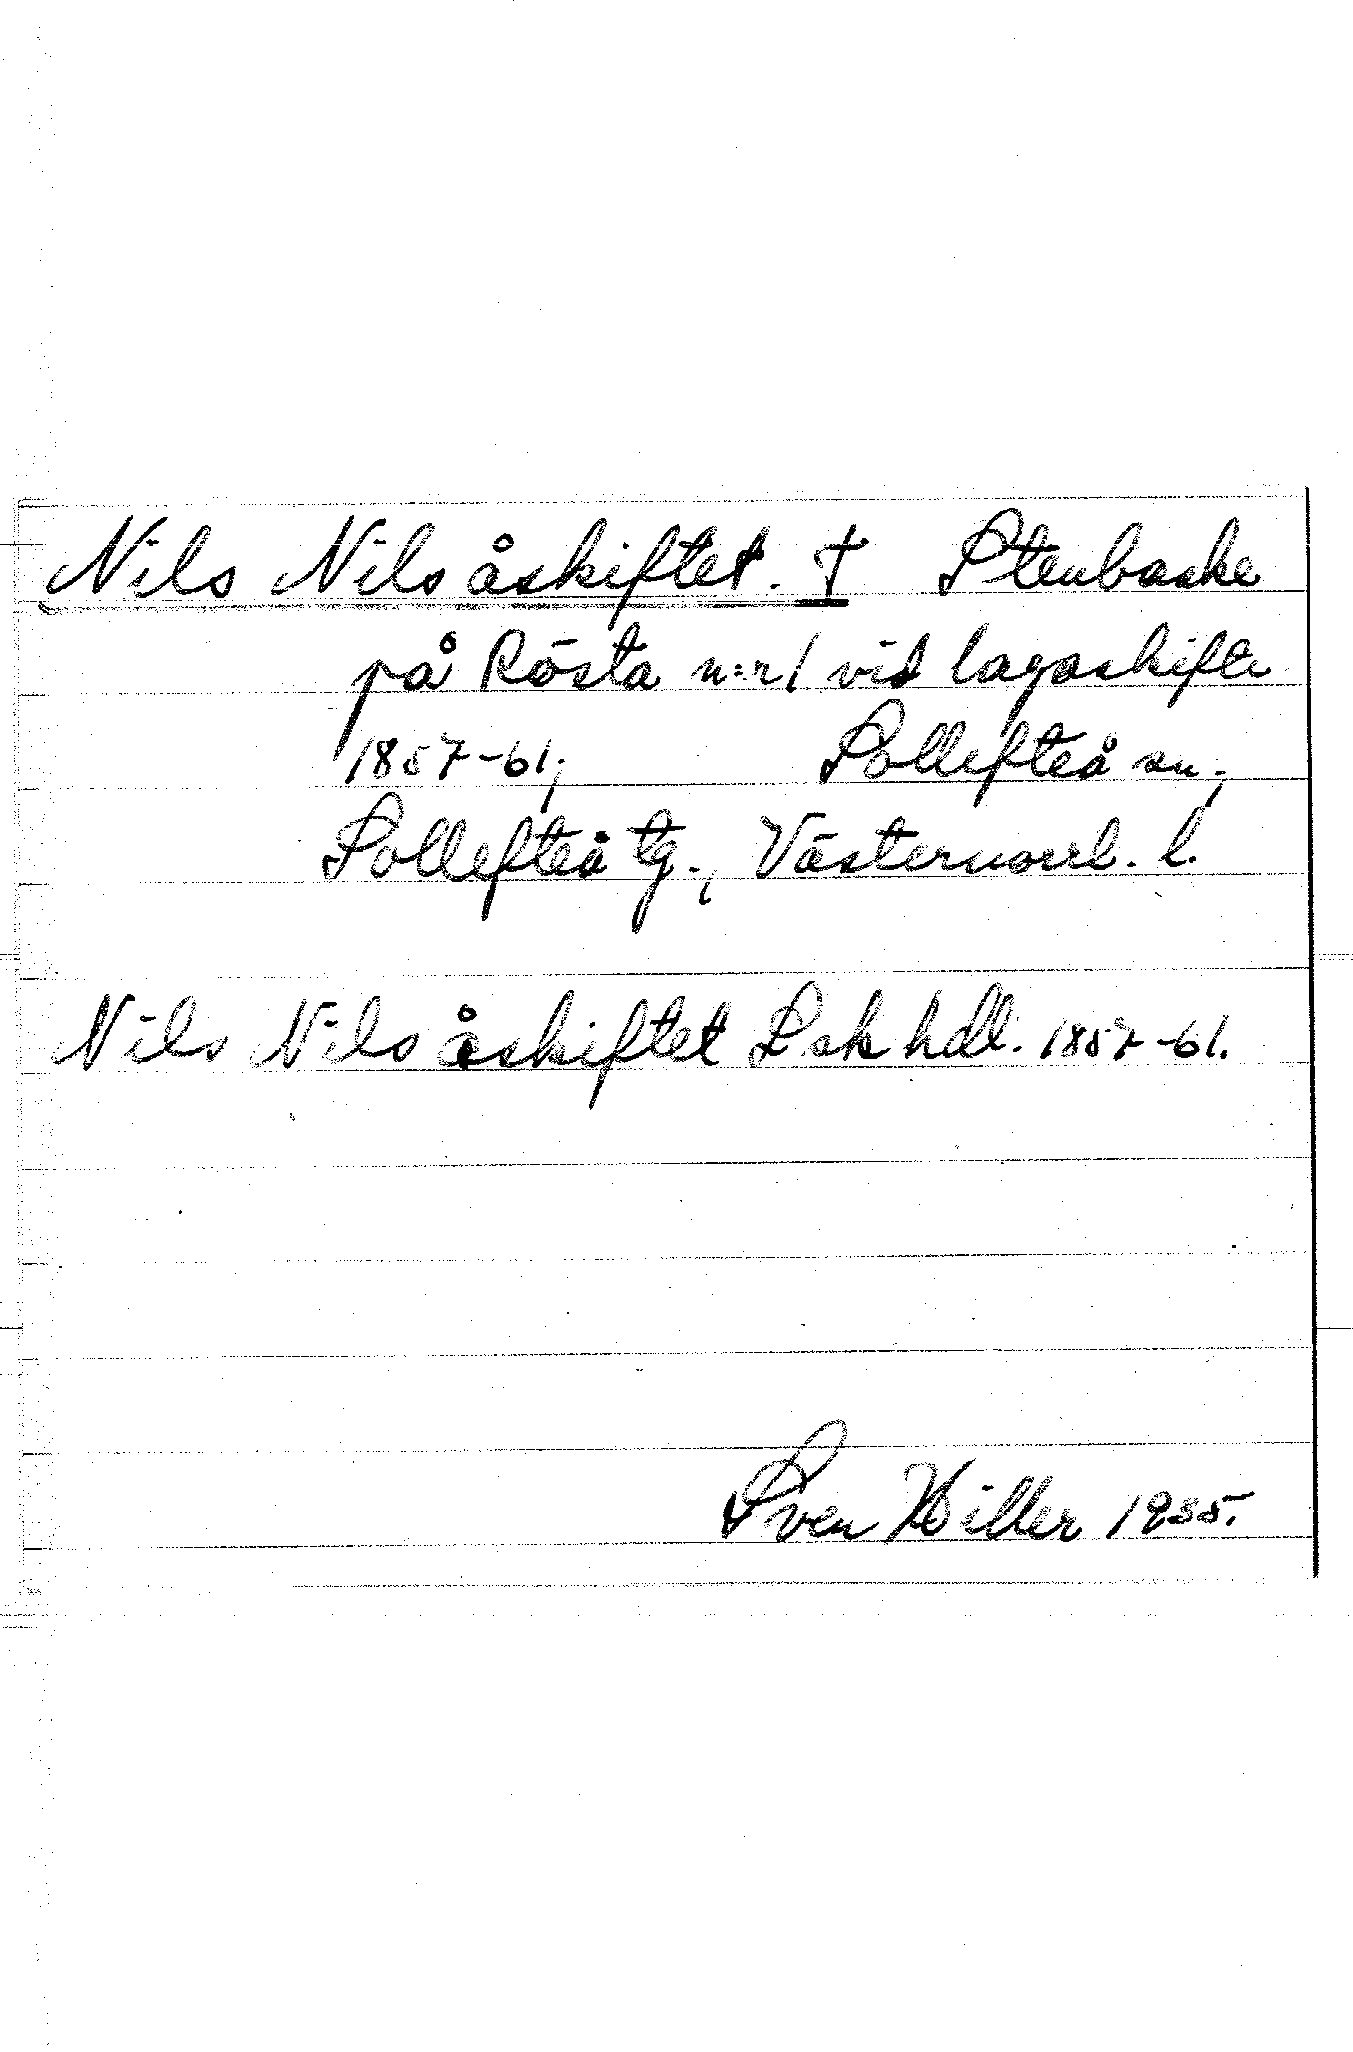 Nils Nilsåskiftet. † Stenbacke
på Rösta n:r 1 vid lagaskifte
1857-61; Sollefteå sn.,
Sollefteå tg., Västernorrl. l.
Nils Nilsåskiftet Lsk hdl. 1857-61.
Sven Hiller 1935.